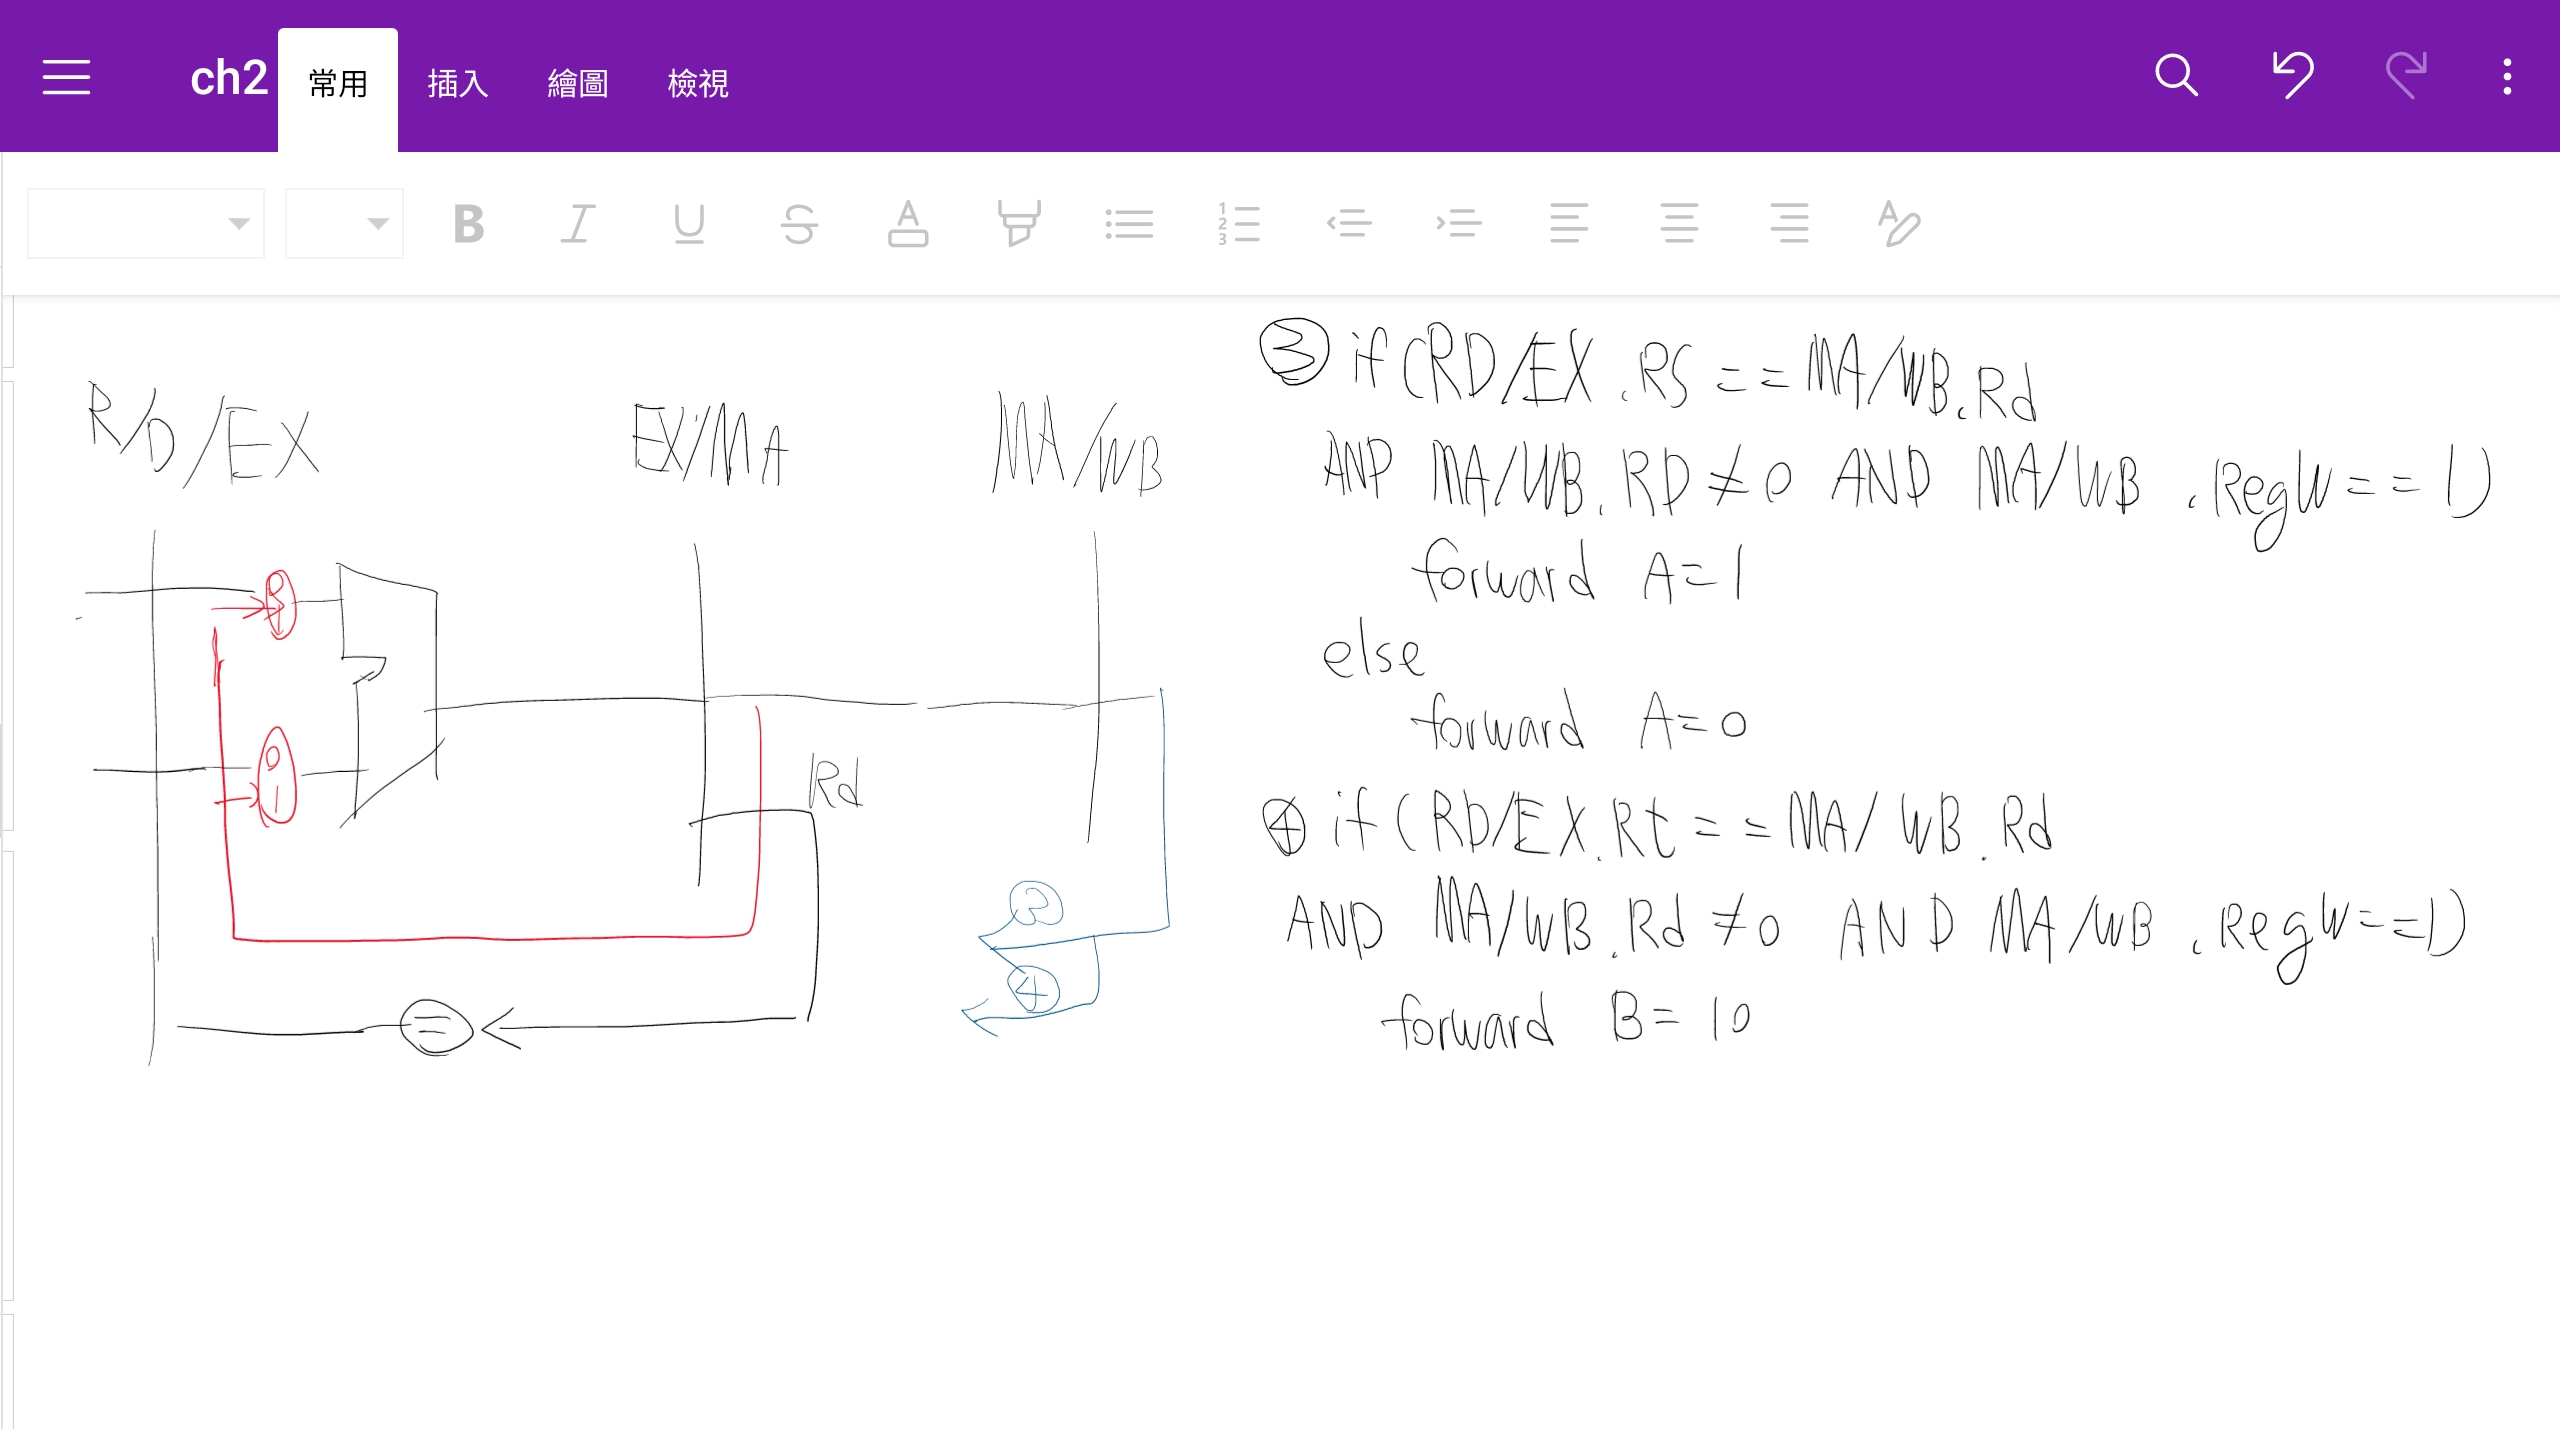 ch2 常用 插入 繪圖 檢視
B I U S A
R/D/EX EX/MA MA/WB
0
1
0
1
Rd
=
2
4
③ if (RD/EX.RS == MA/WB.Rd
AND MA/WB.RD ≠ 0 AND MA/WB.RegW == 1)
forward A=1
else
forward A=0
④ if (RD/EX.Rt == MA/WB.Rd
AND MA/WB.Rd ≠ 0 AND MA/WB.RegW == 1)
forward B= 10